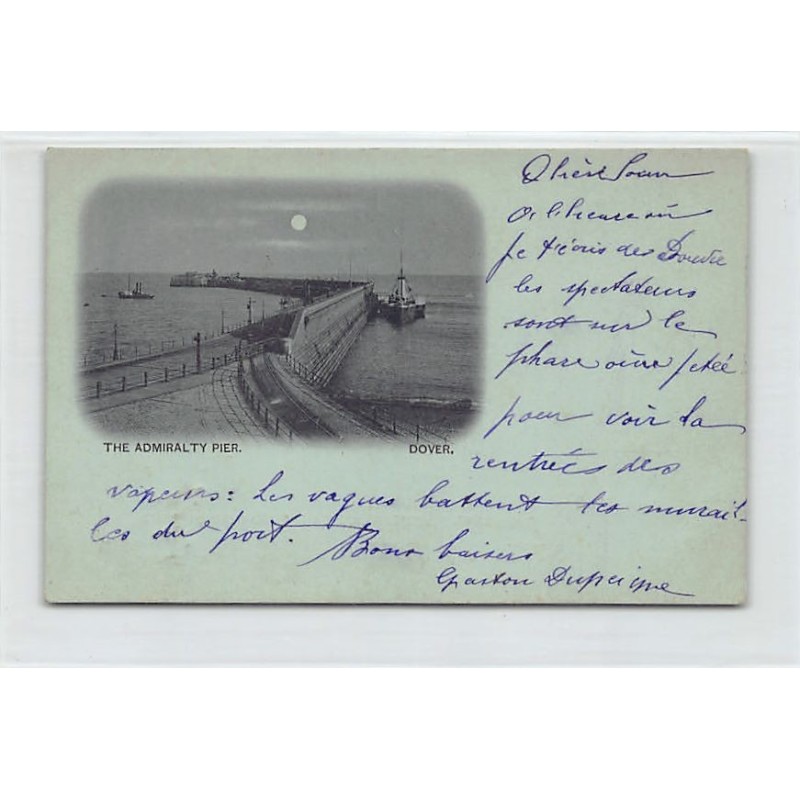 Chère Soeur
A l'heure où
je t'écris de Douvre
les spectateurs
sont sur le
phare ou jetée
pour voir la
rentrées des
THE ADMIRALTY PIER. DOVER.
vapeurs: Les vagues battent les murail-
les du port. Bons baisers
Gaston